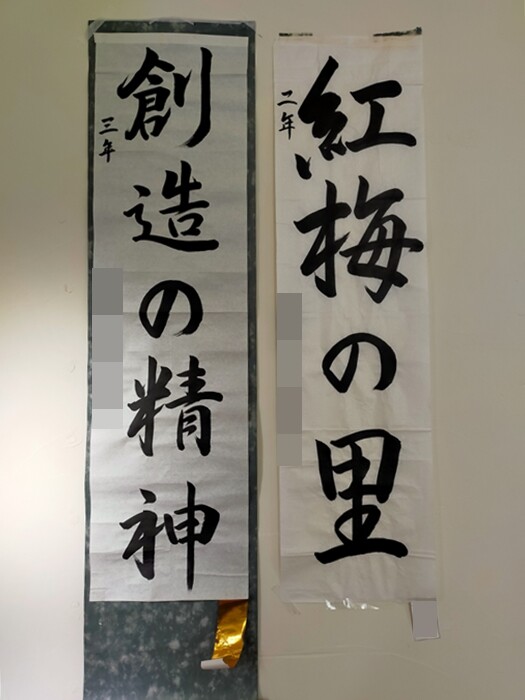 紅梅の里
二年
創造の精神
三年